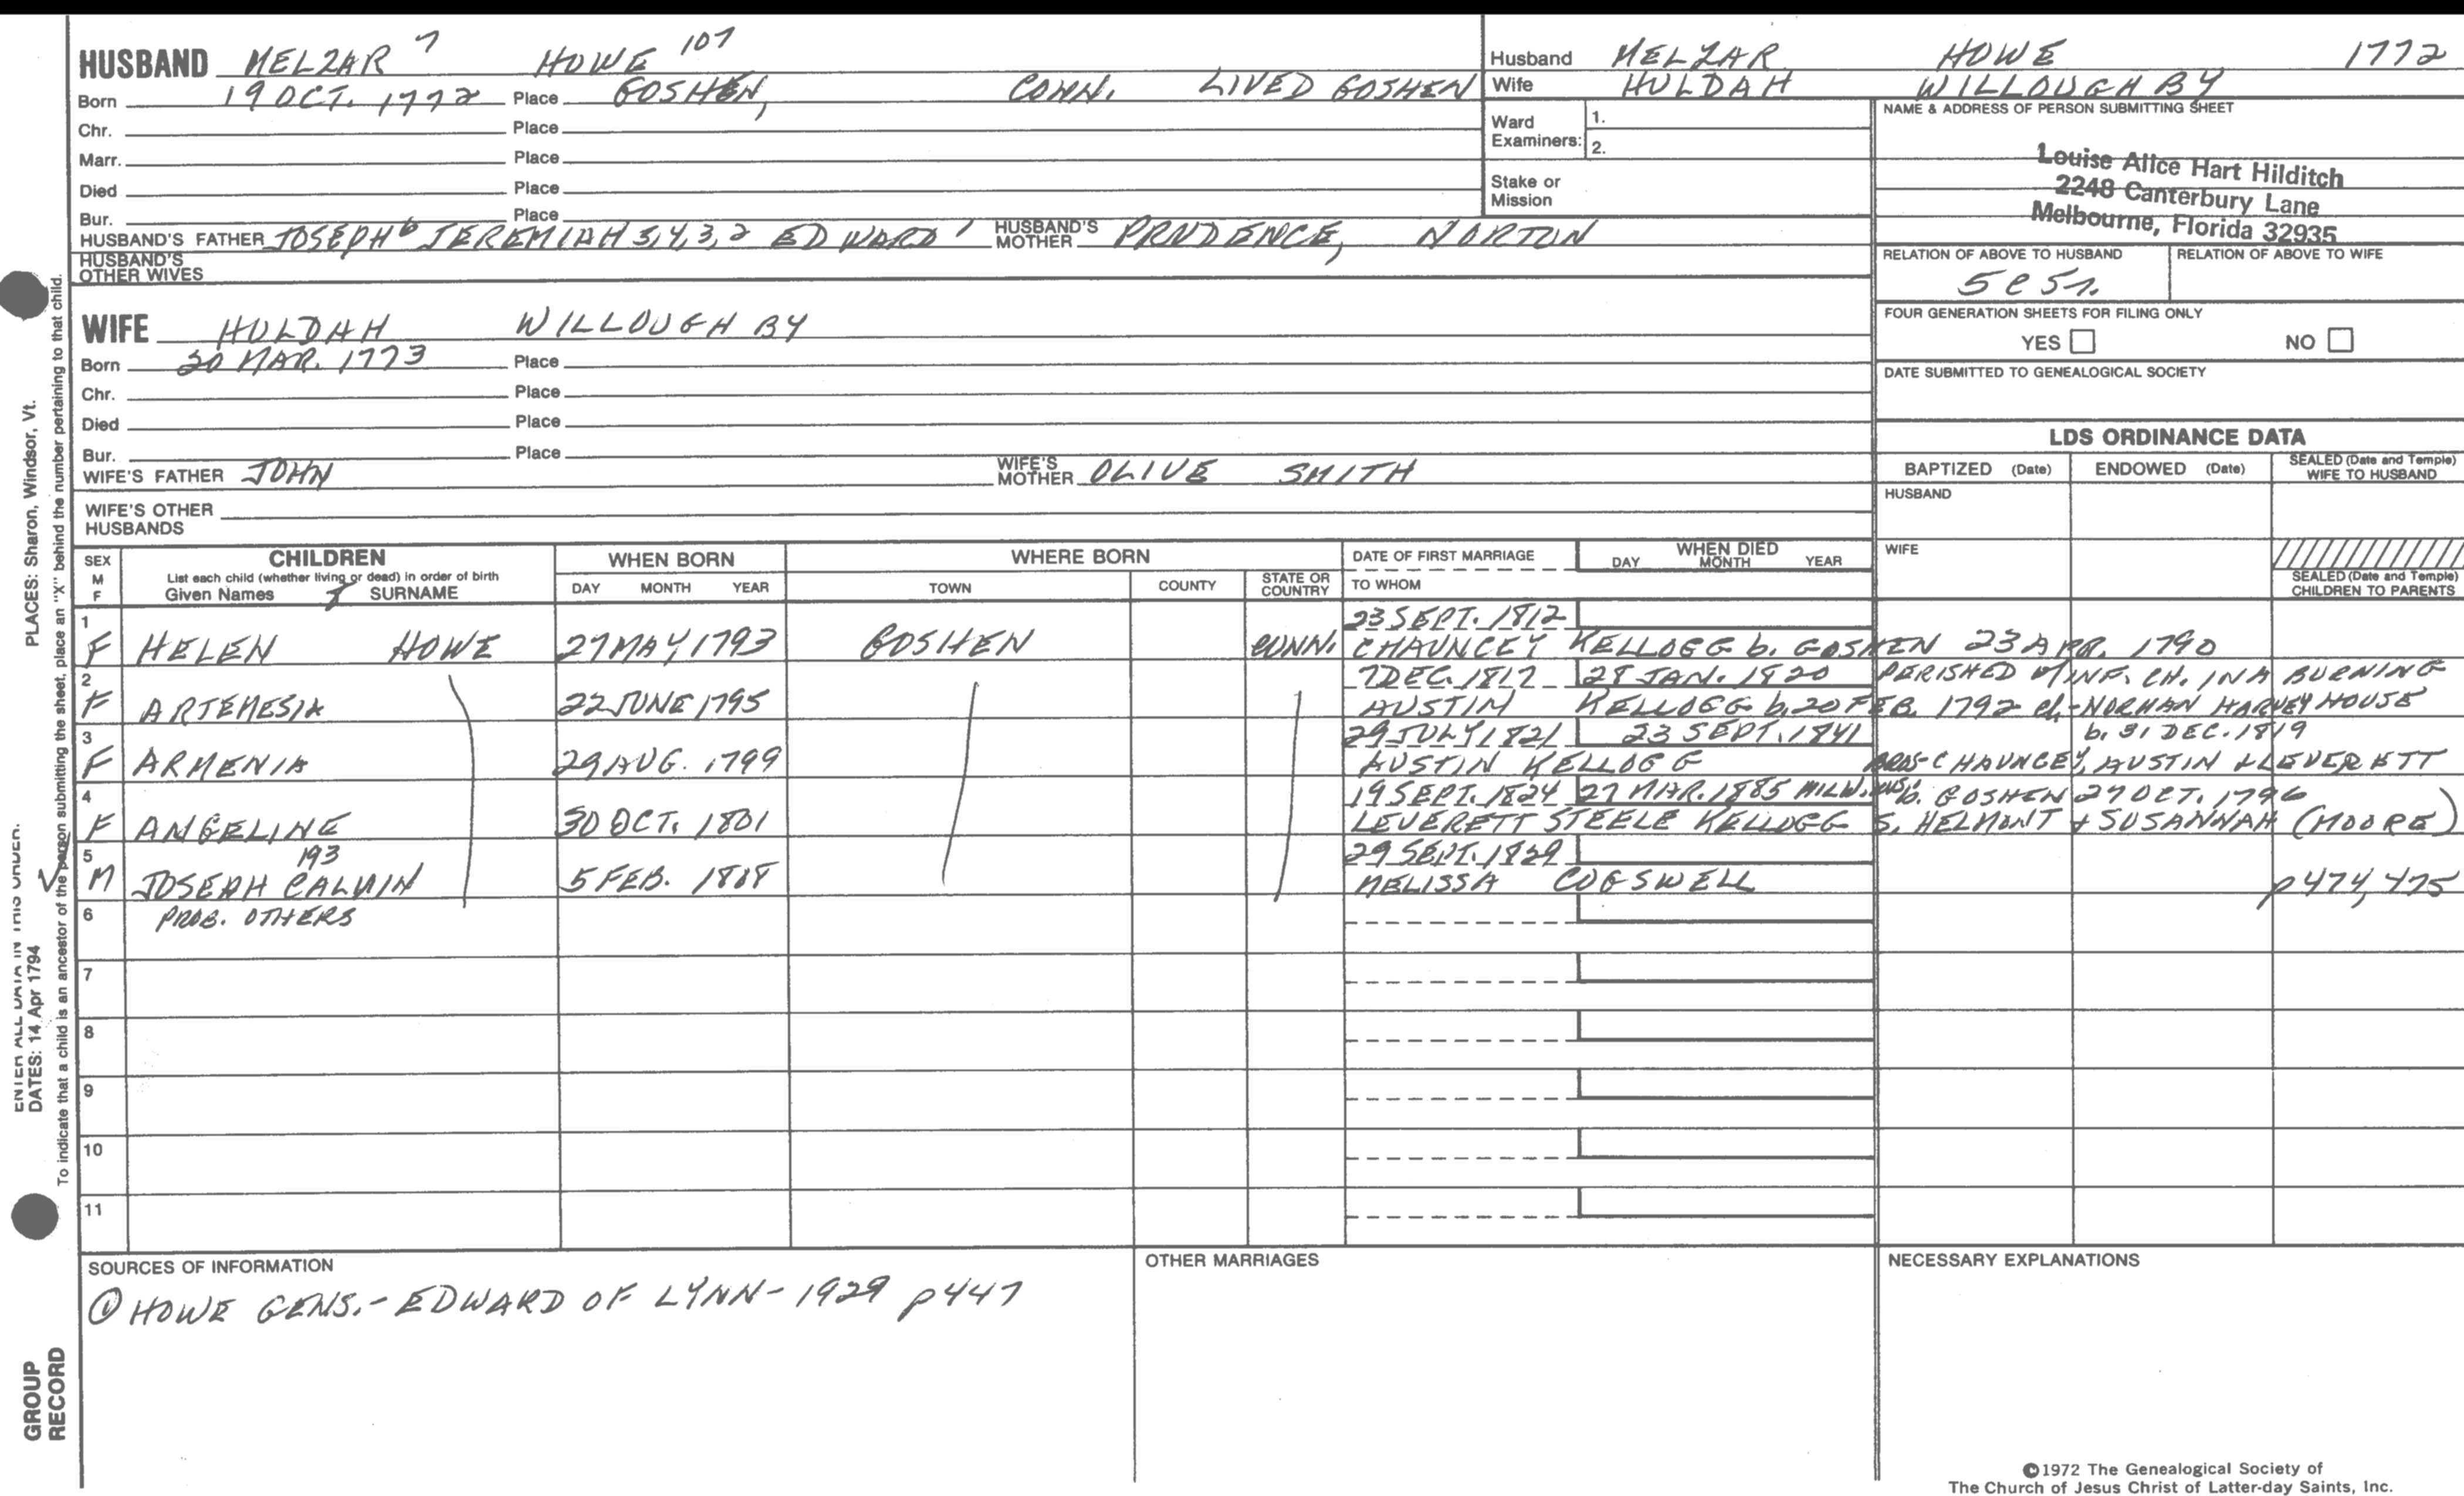 HUSBAND MELZAR 7 HOWE 107
Born 19 OCT. 1772 Place GOSHEN, CONN. LIVED GOSHEN
Chr. Place
Marr. Place
Died Place
Bur. Place
HUSBAND'S FATHER JOSEPH 6 JEREMIAH 5,4,3,2 EDWARD 1 HUSBAND'S MOTHER PRUDENCE, NORTON
HUSBAND'S OTHER WIVES
Husband MELZAR HOWE 1772
Wife HULDAH WILLOUGHBY
Ward Examiners: 1.
2.
Stake or Mission
NAME & ADDRESS OF PERSON SUBMITTING SHEET
Louise Alice Hart Hilditch
2248 Canterbury Lane
Melbourne, Florida 32935
RELATION OF ABOVE TO HUSBAND RELATION OF ABOVE TO WIFE
FOUR GENERATION SHEETS FOR FILING ONLY
YES NO
DATE SUBMITTED TO GENEALOGICAL SOCIETY
WIFE HULDAH WILLOUGHBY
Born 20 MAR. 1773 Place
Chr. Place
Died Place
Bur. Place
WIFE'S FATHER JOHN WIFE'S MOTHER OLIVE SMITH
WIFE'S OTHER HUSBANDS
LDS ORDINANCE DATA
BAPTIZED (Date) ENDOWED (Date) SEALED (Date and Temple) WIFE TO HUSBAND
HUSBAND
WIFE
SEALED (Date and Temple) CHILDREN TO PARENTS
SEX M F
CHILDREN
List each child (whether living or dead) in order of birth
Given Names SURNAME
WHEN BORN
DAY MONTH YEAR
WHERE BORN
TOWN COUNTY STATE OR COUNTRY
DATE OF FIRST MARRIAGE
TO WHOM
WHEN DIED
DAY MONTH YEAR
1 23 SEPT. 1812
F HELEN HOWE 27 MAY 1793 GOSHEN CONN. CHAUNCEY KELLOGG b. GOSHEN 23 APR. 1790
2 7 DEC. 1817 28 JAN. 1820 PERISHED W/INF. CH. IN A BURNING
F ARTEMESIA 22 JUNE 1795 AUSTIN KELLOGG b. 20 FEB. 1792 ch-NORMAN HARVEY HOUSE
3 29 JULY 1821 23 SEPT. 1841 b. 31 DEC. 1819
F ARMENIA 29 AUG. 1799 AUSTIN KELLOGG BROS-CHAUNCEY, AUSTIN & LEVERETT
4 19 SEPT. 1824 27 MAR. 1885 MILW. WIS. b. GOSHEN 27 OCT. 1796
F ANGELINE 30 OCT. 1801 LEVERETT STEELE KELLOGG S. HELMONT + SUSANNAH (MOORE)
5 193 29 SEPT. 1829
M JOSEPH CALVIN 5 FEB. 1808 MELISSA COGSWELL p474,475
6 PROB. OTHERS
7
8
9
10
11
SOURCES OF INFORMATION
① HOWE GENS. - EDWARD OF LYNN - 1929 p447
OTHER MARRIAGES
NECESSARY EXPLANATIONS
©1972 The Genealogical Society of
The Church of Jesus Christ of Latter-day Saints, Inc.
PLACES: Sharon, Windsor, Vt.
ENTER ALL DATA IN THIS ORDER.
DATES: 14 Apr 1794
To indicate that a child is an ancestor of the person submitting the sheet, place an "X" behind the number pertaining to that child.
GROUP RECORD